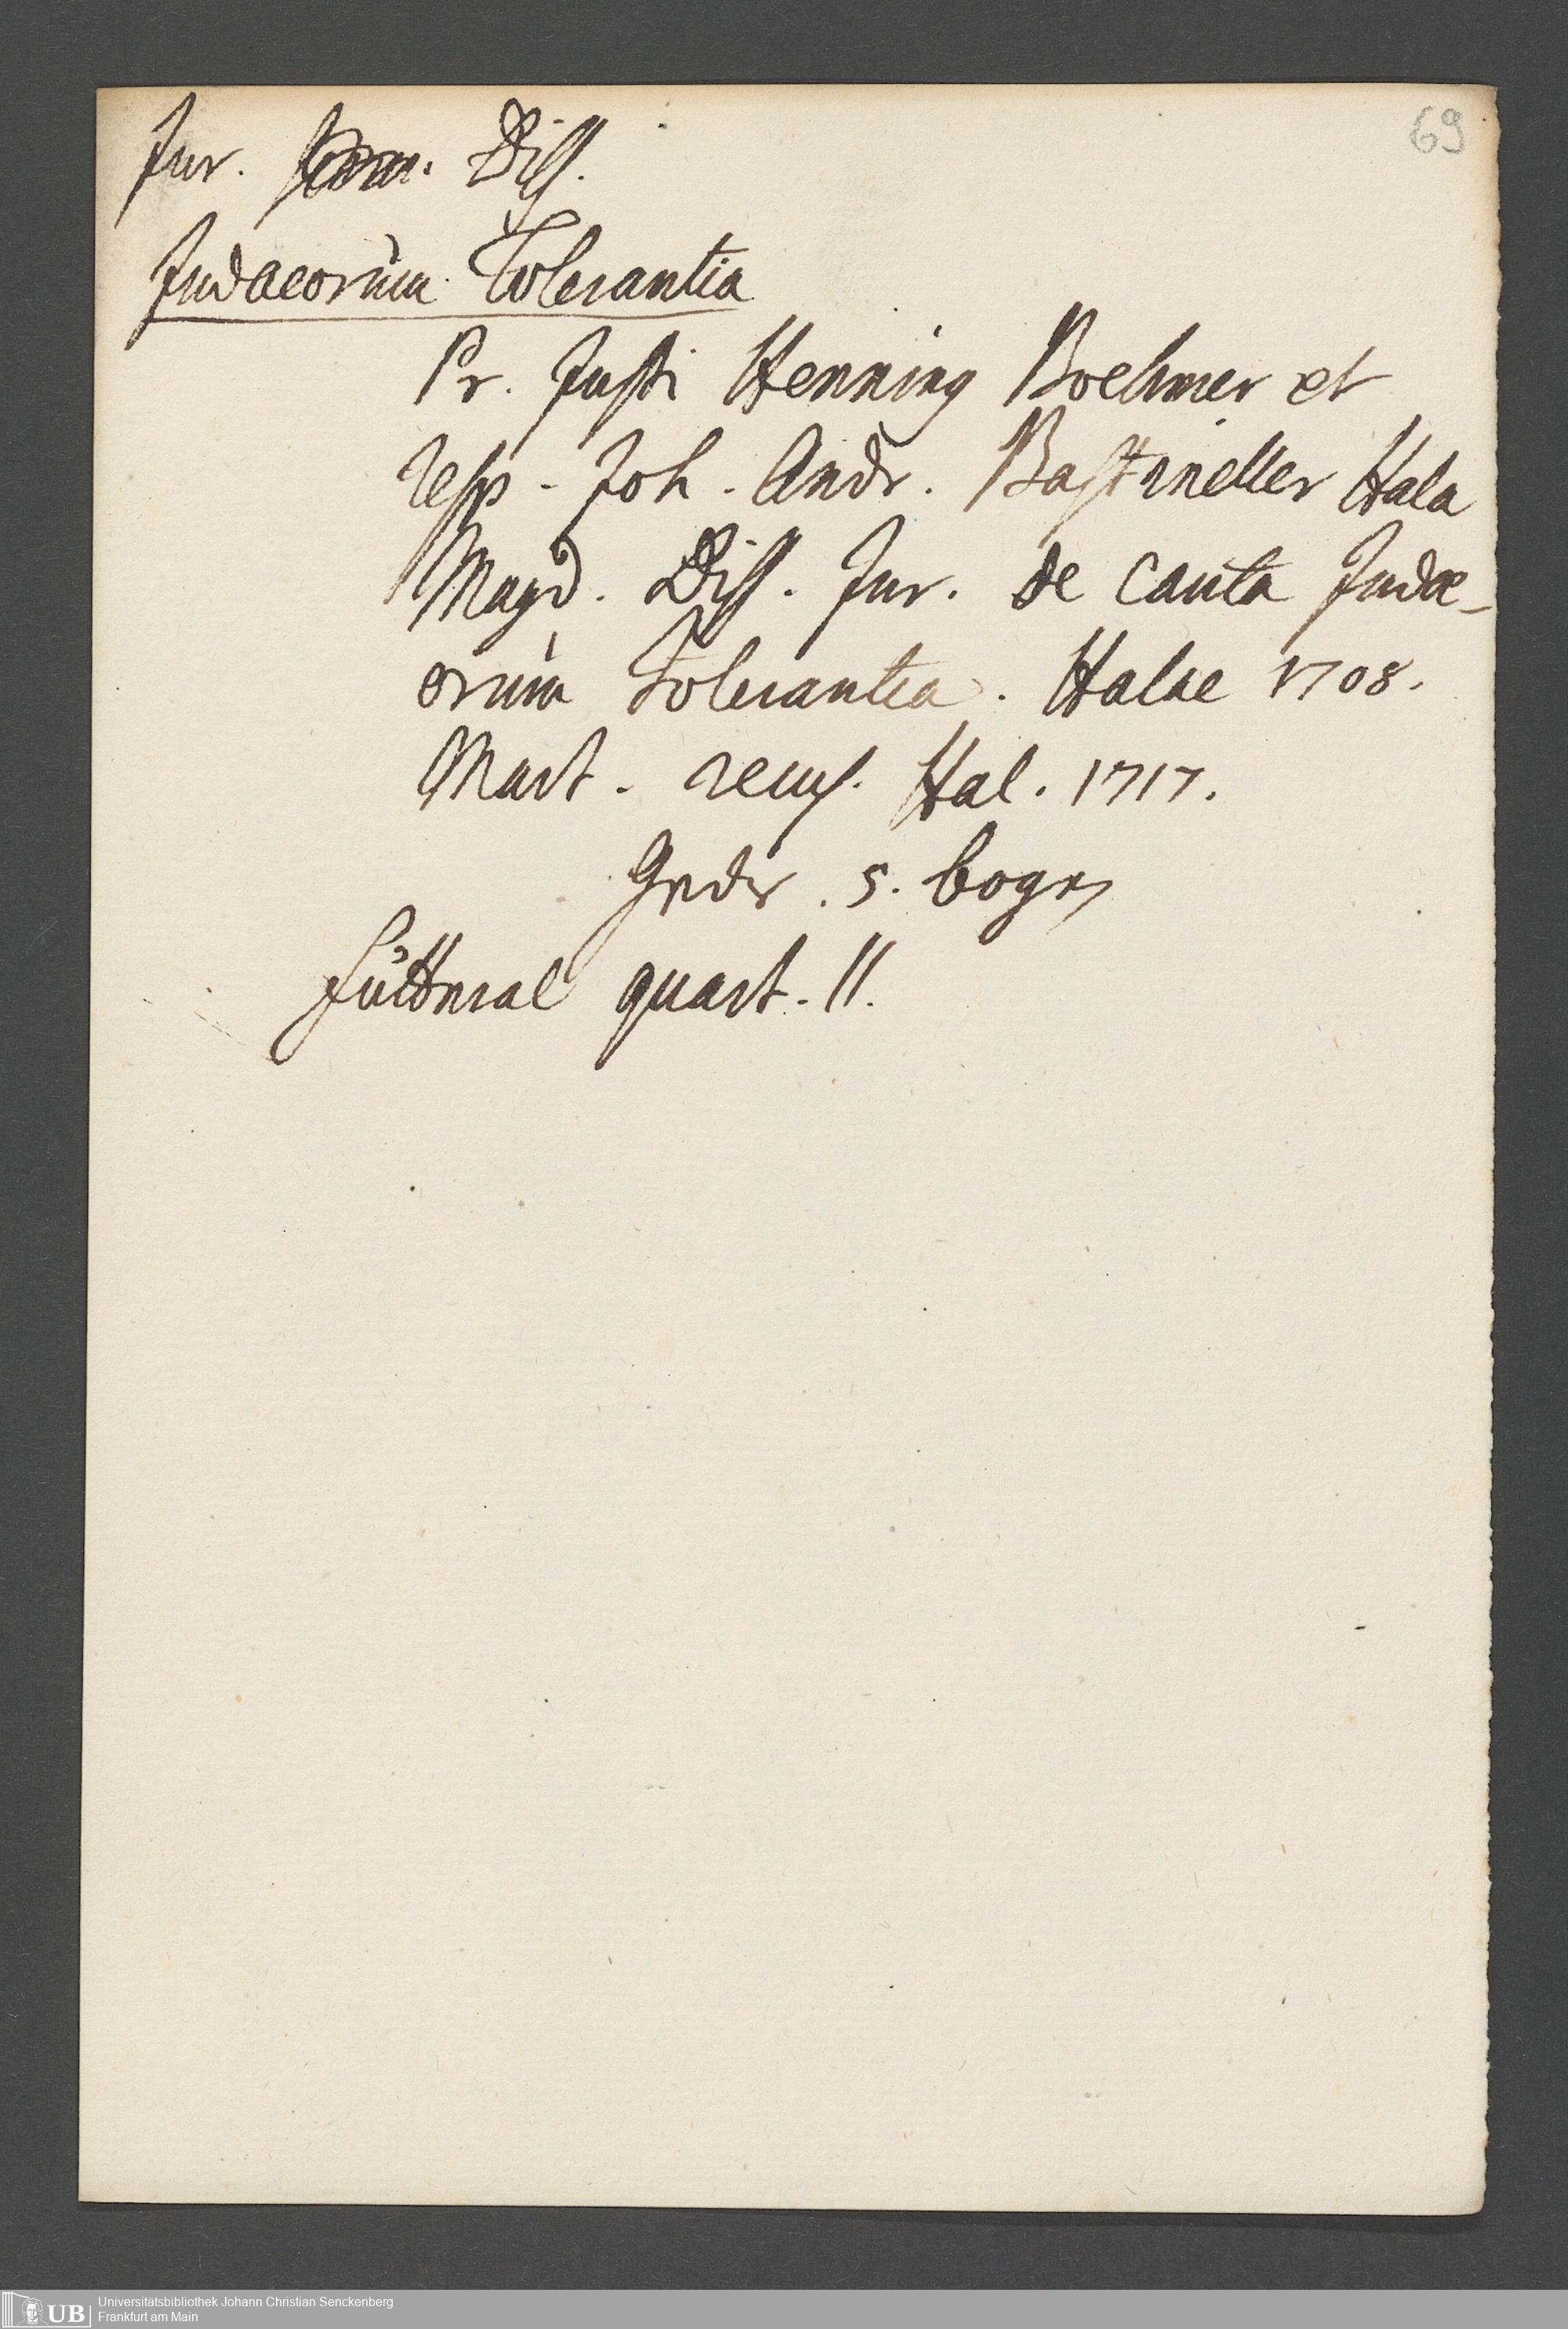 69
Jur. Diss.
Judaeorum Tolerantia
Pr. Justi Henning Boehmer et
resp. Joh. Andr. Bastineller Hala
Magd. Diss. Jur. de cauta Judae-
orum Tolerantia. Halae 1708.
Mart. recus. Hal. 1717.
5. bogn
quart. 11.
UB
Universitätsbibliothek Johann Christian Senckenberg
Frankfurt am Main